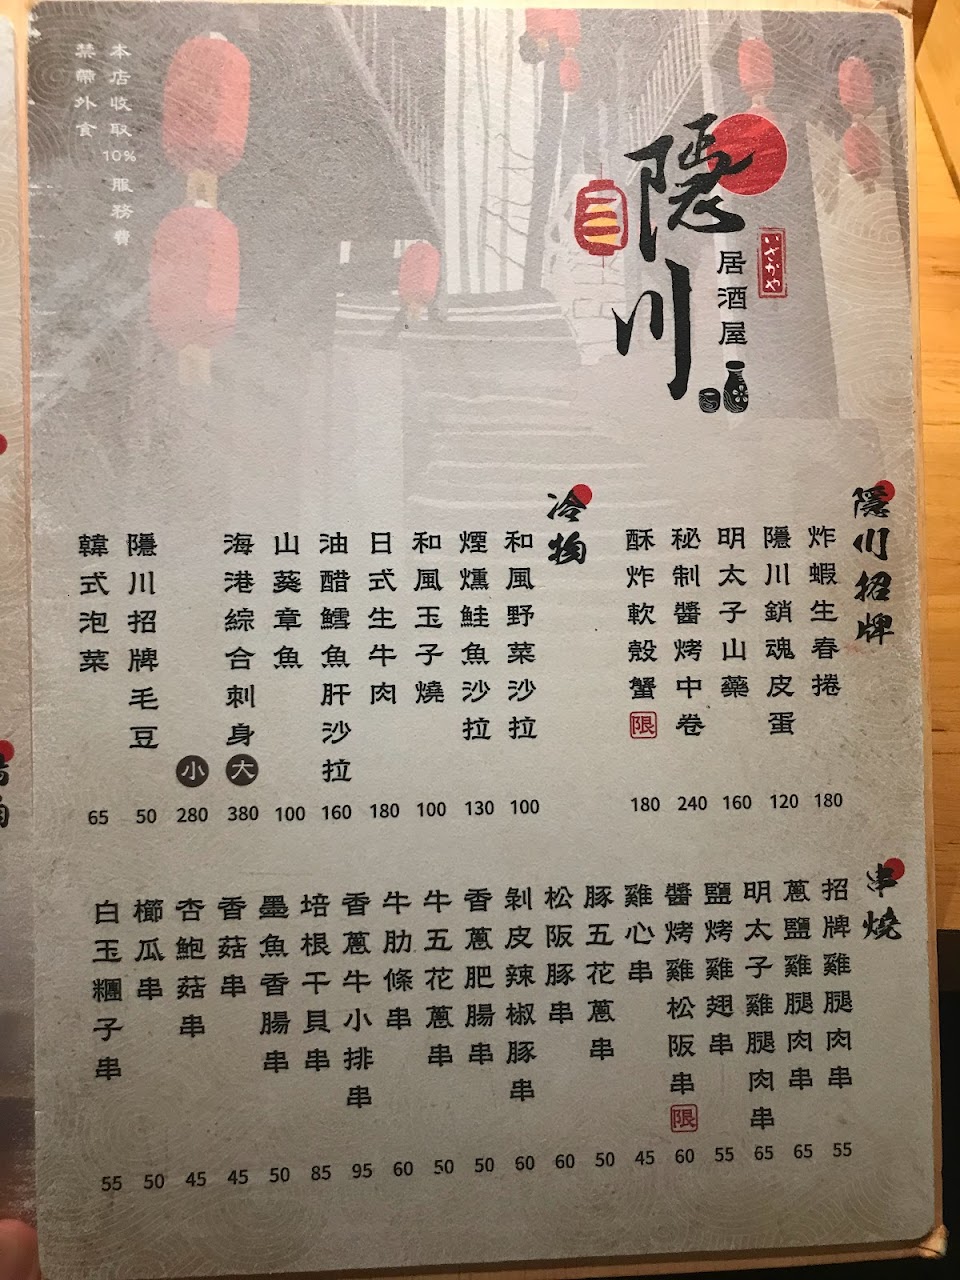 本店收取10%服務費
禁帶外食
隱川
居酒屋
いざかや
隱川招牌
炸蝦生春捲 180
隱川銷魂皮蛋 120
明太子山藥 160
秘制醬烤中卷 240
酥炸軟殼蟹 限 180
冷物
和風野菜沙拉 100
煙燻鮭魚沙拉 130
和風玉子燒 100
日式生牛肉 180
油醋鱈魚肝沙拉 160
山葵章魚 100
海港綜合刺身 大 380
小 280
隱川招牌毛豆 50
韓式泡菜 65
串燒
招牌雞腿肉串 55
蔥鹽雞腿肉串 65
明太子雞腿肉串 65
鹽烤雞翅串 55
醬烤雞松阪串 限 60
雞心串 45
豚五花蔥串 50
松阪豚串 60
剝皮辣椒豚串 60
香蔥肥腸串 50
牛五花蔥串 50
牛肋條串 60
香蔥牛小排串 95
培根干貝串 85
墨魚香腸串 50
香菇串 45
杏鮑菇串 45
櫛瓜串 50
白玉糰子串 55